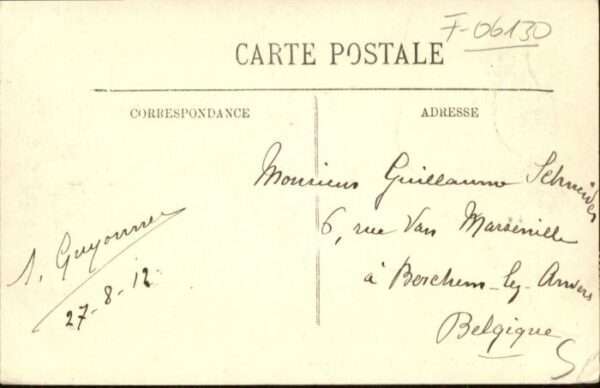 F-06130
CARTE POSTALE
CORRESPONDANCE
ADRESSE
Monsieur Guillaume Schneider
6, rue Van Marsenille
à Berchem-lez-Anvers
Belgique
27-8-12